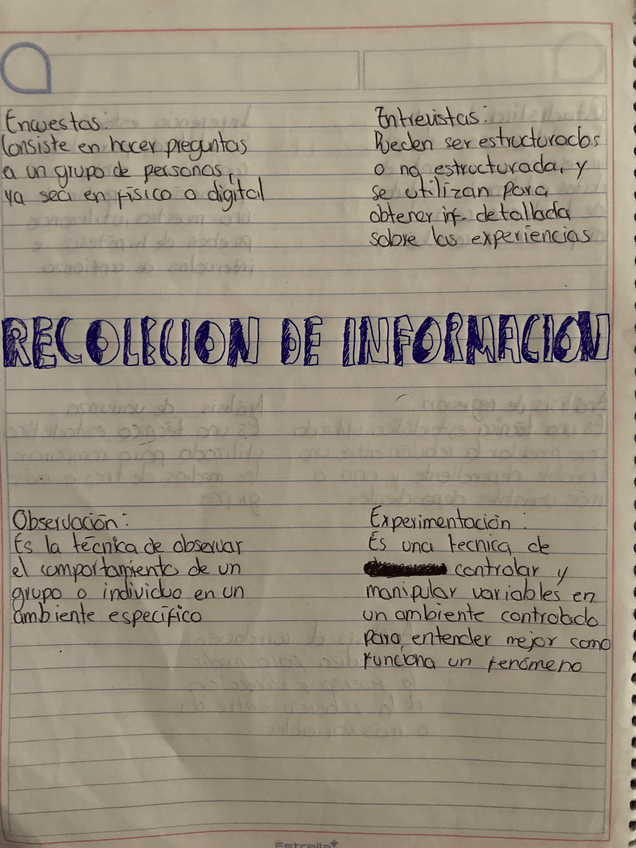 Encuestas:
Consiste en hacer preguntas
a un grupo de personas,
ya sea en físico o digital
Entrevistas:
Pueden ser estructurados
o no estructurada, y
se utilizan para
obtener inf. detallada
sobre las experiencias
RECOLECION DE INFORMACION
Observación:
Es la técnica de observar
el comportamiento de un
grupo o individuo en un
ambiente específico
Experimentación:
Es una tecnica de
controlar y
manipular variables en
un ambiente controlado
para entender mejor como
funciona un fenómeno
Estrella